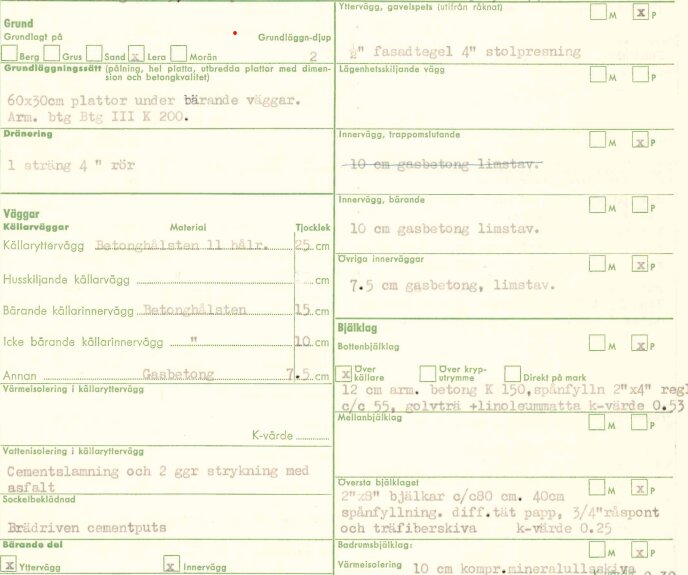 Grund
Grundlagt på
Grundläggn-djup
Berg Grus Sand x Lera Morän 2
Grundläggningssätt (pålning, hel platta, utbredda plattor med dimension och betongkvalitet)
60x30cm plattor under bärande väggar.
Arm. btg Btg III K 200.
Dränering
1 sträng 4 " rör
Väggar
Källarväggar Material Tjocklek
Källaryttervägg Betonghålsten 11 hålr. 25 cm
Husskiljande källarvägg cm
Bärande källarinnervägg Betonghålsten 15 cm
Icke bärande källarinnervägg " 10 cm
Annan Gasbetong 7.5 cm
Värmeisolering i källaryttervägg
K-värde
Vattenisolering i källaryttervägg
Cementslamning och 2 ggr strykning med
asfalt
Sockelbeklädnad
Brädriven cementputs
Bärande del
x Yttervägg x Innervägg
Yttervägg, gavelspets (utifrån räknat) M x P
½" fasadtegel 4" stolpresning
Lägenhetsskiljande vägg M P
Innervägg, trappomslutande M x P
10 cm gasbetong limstav.
Innervägg, bärande M P
10 cm gasbetong limstav.
Övriga innerväggar M x P
7.5 cm gasbetong, limstav.
Bjälklag
Bottenbjälklag M x P
x Över källare Över kryputrymme Direkt på mark
12 cm arm. betong K 150, spånfylln 2"x4" regl
c/c 55, golvträ +linoleummatta k-värde 0.53
Mellanbjälklag M P
Översta bjälklaget M x P
2"x8" bjälkar c/c80 cm. 40cm
spånfyllning. diff.tät papp, 3/4"råspont
och träfiberskiva k-värde 0.25
Badrumsbjälklag: M x P
Värmeisolering 10 cm kompr.mineralullsskiva